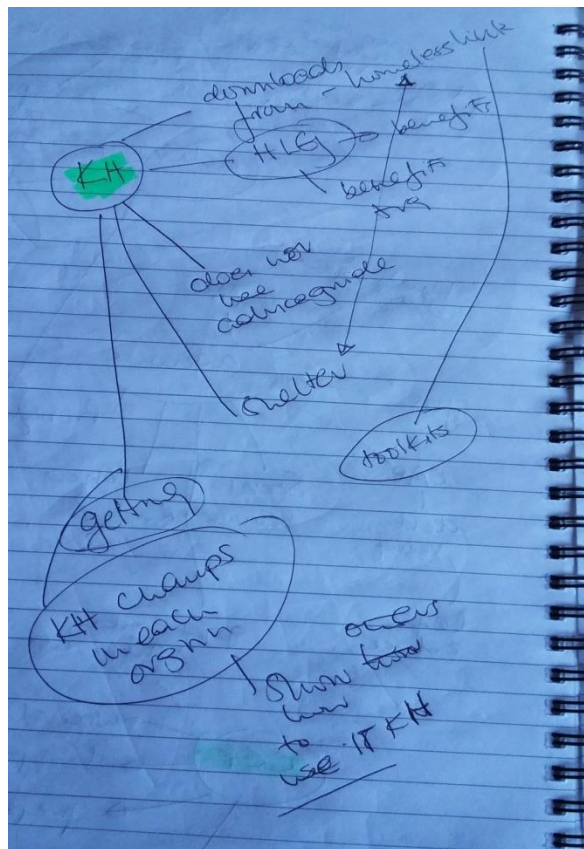 downloads
from - homeless link
KH
HLG → benefits
benefit
trg
does not
use
adviceguide
shelter
toolkits
getting
KH champs
in each
orgnn
others
show
how
to
use IT KH